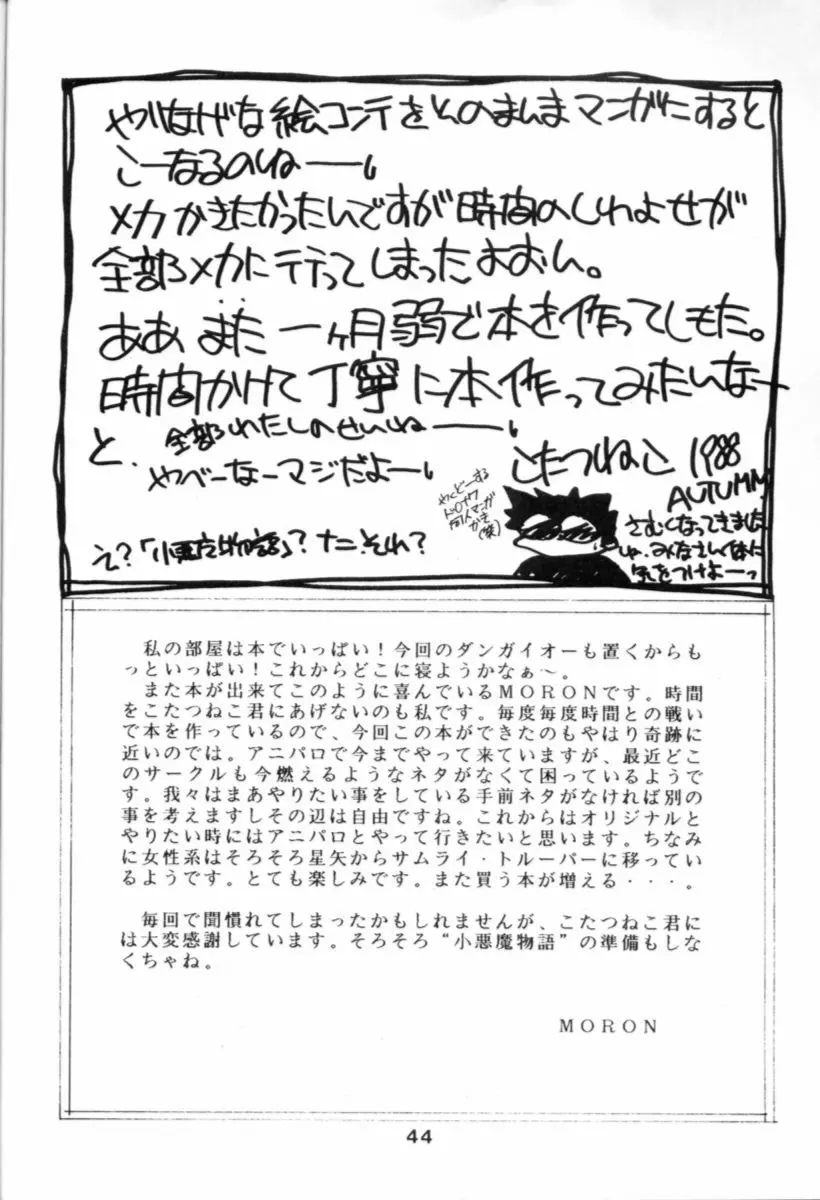 やりなげな絵コンテをそのまんまマンガにすると
こーなるのねーー。
メカかきたかったんですが時間のしわよせが
全部メカに行ってしまったよおん。
ああ また 一ヶ月弱で本を作ってしもた。
時間かけて丁寧に本作ってみたいなー
と、全部わたしのせいねーー。
やべーなーマジだよー。
こたつねこ 1988
AUTUMN
さむくなってきました
みなさん体に
気をつけよーっ
え？「小悪魔物語」？ナニそれ？
私の部屋は本でいっぱい！今回のダンガイオーも置くからも
っといっぱい！これからどこに寝ようかなぁ～。
また本が出来てこのように喜んでいるＭＯＲＯＮです。時間
をこたつねこ君にあげないのも私です。毎度毎度時間との戦い
で本を作っているので、今回この本ができたのもやはり奇跡に
近いのでは。アニパロで今までやって来ていますが、最近どこ
のサークルも今燃えるようなネタがなくて困っているようで
す。我々はまあやりたい事をしている手前ネタがなければ別の
事を考えますしその辺は自由ですね。これからはオリジナルと
やりたい時にはアニパロとやって行きたいと思います。ちなみ
に女性系はそろそろ星矢からサムライ・トルーパーに移ってい
るようです。とても楽しみです。また買う本が増える・・・。
毎回で聞慣れてしまったかもしれませんが、こたつねこ君に
は大変感謝しています。そろそろ“小悪魔物語”の準備もしな
くちゃね。
ＭＯＲＯＮ
44